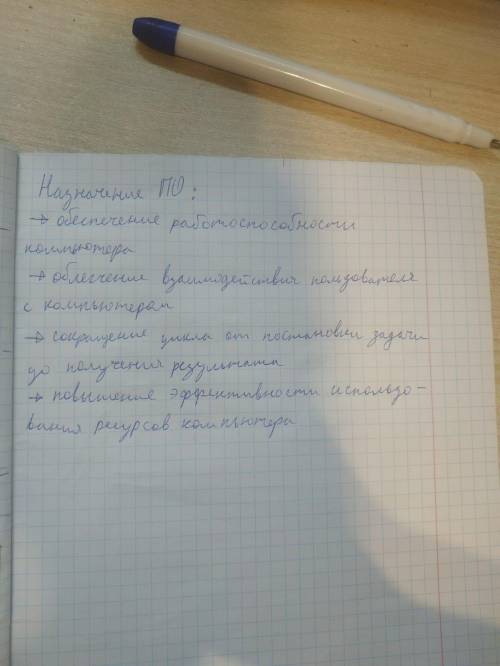 Назначение ПО:
→ обеспечение работоспособности
компьютера
→ облегчение взаимодействия пользователя
с компьютером
→ сокращение цикла от постановки задачи
до получения результата
→ повышение эффективности использо-
вания ресурсов компьютера